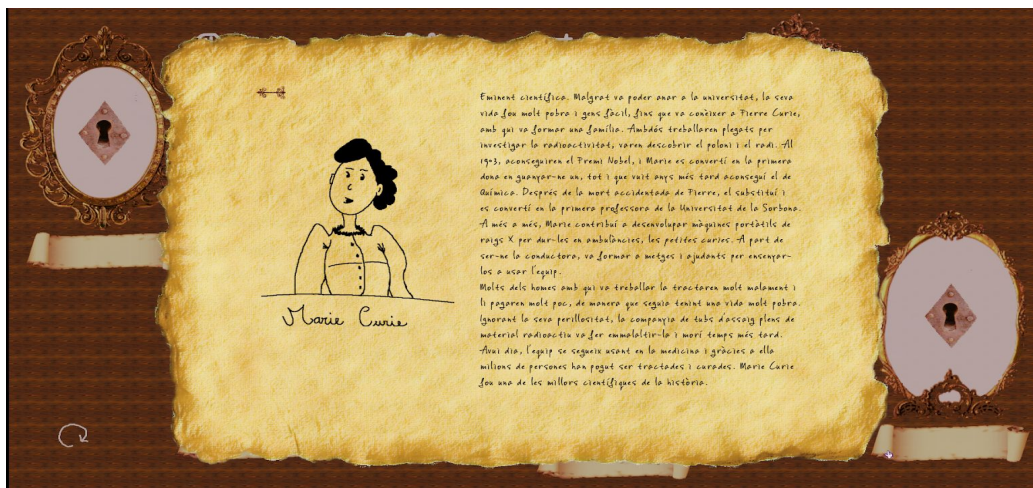 Eminent científica. Malgrat va poder anar a la universitat, la seva
vida fou molt pobra i gens fàcil, fins que va conèixer a Pierre Curie,
amb qui va formar una família. Ambdós treballaren plegats per
investigar la radioactivitat, varen descobrir el poloni i el radi. Al
1903, aconseguiren el Premi Nobel, i Marie es convertí en la primera
dona en guanyar-ne un, tot i que vuit anys més tard aconseguí el de
Química. Després de la mort accidentada de Pierre, el substituí i
es convertí en la primera professora de la Universitat de la Sorbona.
A més a més, Marie contribuí a desenvolupar màquines portàtils de
raigs X per dur-les en ambulàncies, les petites curies. A part de
ser-ne la conductora, va formar a metges i ajudants per ensenyar-
los a usar l'equip.
Molts dels homes amb qui va treballar la tractaren molt malament i
li pagaren molt poc, de manera que seguia tenint una vida molt pobra.
Ignorant la seva perillositat, la companyia de tubs d'assaig plens de
material radioactiu va fer emmalaltir-la i morí temps més tard.
Avui dia, l'equip se segueix usant en la medicina i gràcies a ella
milions de persones han pogut ser tractades i curades. Marie Curie
fou una de les millors científiques de la història.
Marie Curie